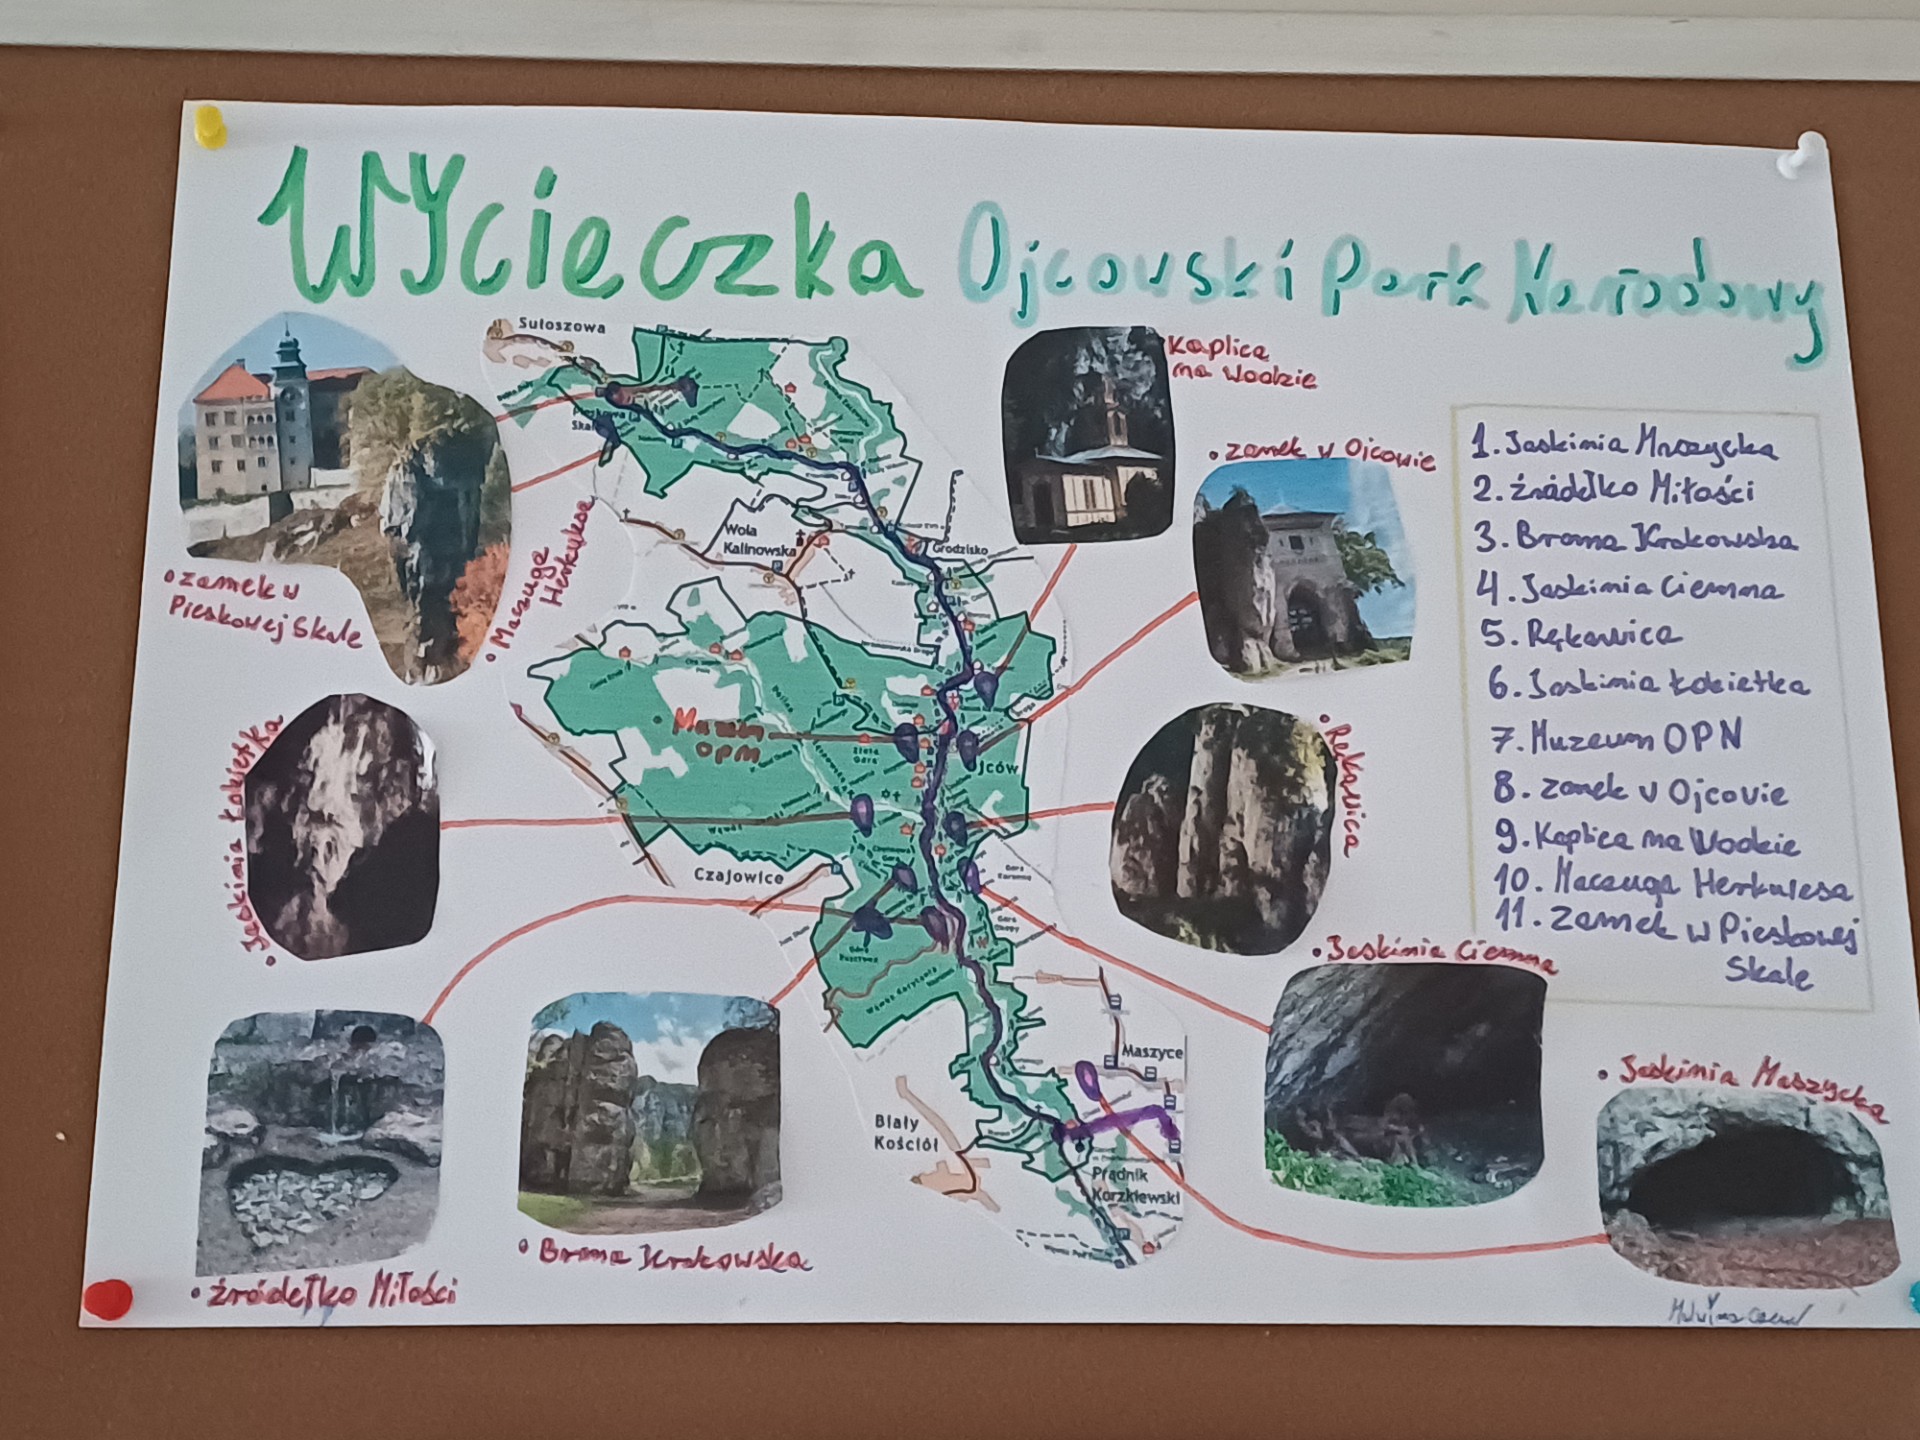 Wycieczka Ojcowski Park Narodowy
Sułoszowa
Pieskowa
Skała
Kaplica
na Wodzie
• zamek w Ojcowie
• zamek w
Pieskowej Skale
• Maczuga
Herkulesa
Wola
Kalinowska
Grodzisko
• Jaskinia Łokietka
• Muzeum
OPN
Złota
Góra
Ojców
• Rękawica
Czajowice
Góra
Koronna
Góra
Okopy
Wąwóz Korytania
• Jaskinia Ciemna
Maszyce
Biały
Kościół
Prądnik
Korzkiewski
• Jaskinia Maszycka
• źródełko Miłości
• Brama Krakowska
1. Jaskinia Maszycka
2. źródełko Miłości
3. Brama Krakowska
4. Jaskinia Ciemna
5. Rękawica
6. Jaskinia Łokietka
7. Muzeum OPN
8. zamek w Ojcowie
9. Kaplica na Wodzie
10. Maczuga Herkulesa
11. zamek w Pieskowej
Skale